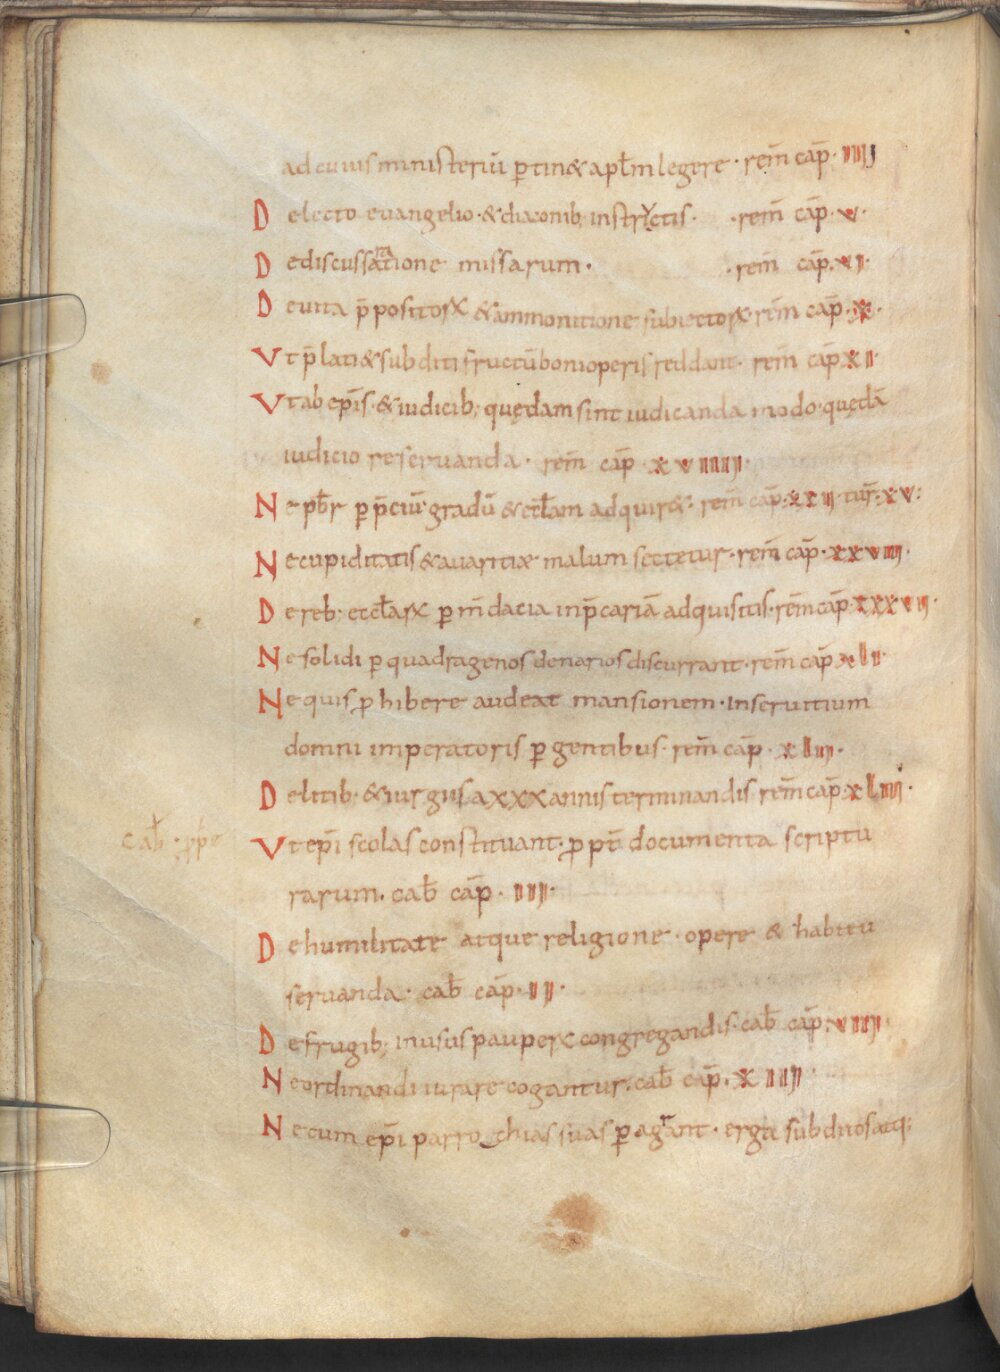 ad cuius ministeriū ꝑtin& apłm legere · rem̄ cap̄ · IIII
D e lecto euangelio · & diaconib; instrYctis · · rem̄ cap̄ · V ·
D e discussa ra tione missarum · · rem̄ cap̄ · VI ·
D e uita p̄positoꝝ & ammonitione subiectoꝝ rem̄ cap̄ · X ·
V t p̄lati & subditi fructū boni operis reddant · rem̄ cap̄ XI ·
V t ab ep̄is · & iudicib; quędam sint iudicanda modo · quędā
iudicio reseruanda · rem̄ cap̄ · XVIIII ·
N e pb̄r ꝑ p̄ciū gradū & eccl̄am adquir& · rem̄ cap̄ · XXII · tur̄ · XV :
N e cupiditatis & auaritiæ malum sectetur · rem̄ cap̄ · XXVIII ·
D e reb; eccl̄aꝝ ꝑ m̄dacia in p̄cariā adquisitis · rem̄ cap̄ · XXXVII ·
N e solidi ꝑ quadragenos denarios discurrant · rem̄ cap̄ XLI ·
N e quis ꝓhibere audeat mansionem · in seruitium
domni imperatoris ꝑgentibus · rem̄ cap̄ · XLII ·
D e litib · & iurgiis a XXX annis terminandis rem̄ cap̄ · XLIII ·
cab̄ · ꝓpe
V t ep̄i scolas constituant · ꝓpt̄ documenta scriptu
rarum · cab̄ cap̄ · III ·
D e humilitate atque religione · opere & habitu
seruanda · cab̄ cap̄ · II ·
D e frugib; in usus paupeꝝ congregandis · cab̄ cap̄ · VIII ·
N e ordinandi iurare cogantur · cab̄ cap̄ · XIII ·
N e cum ep̄i parrochias suas ꝑagrant · erga subditos atq;